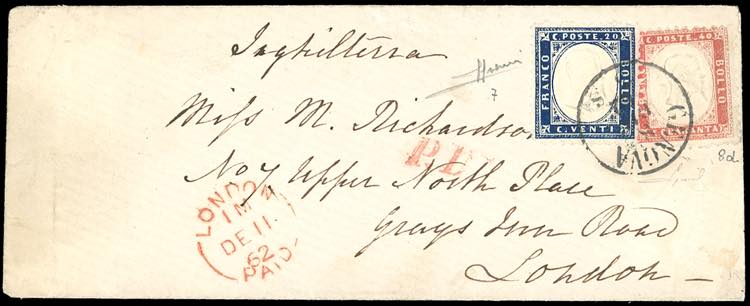 Inghilterra
Miss M. Richardson
No 7 Upper North Place
Grays Inn Road
London
C. POSTE. 20
FRANCO
BOLLO
C. VENTI
C. POSTE. 40
BOLLO
GENOVA
P.D.
7
8d
LONDON
1M
DE 11
62
PAID